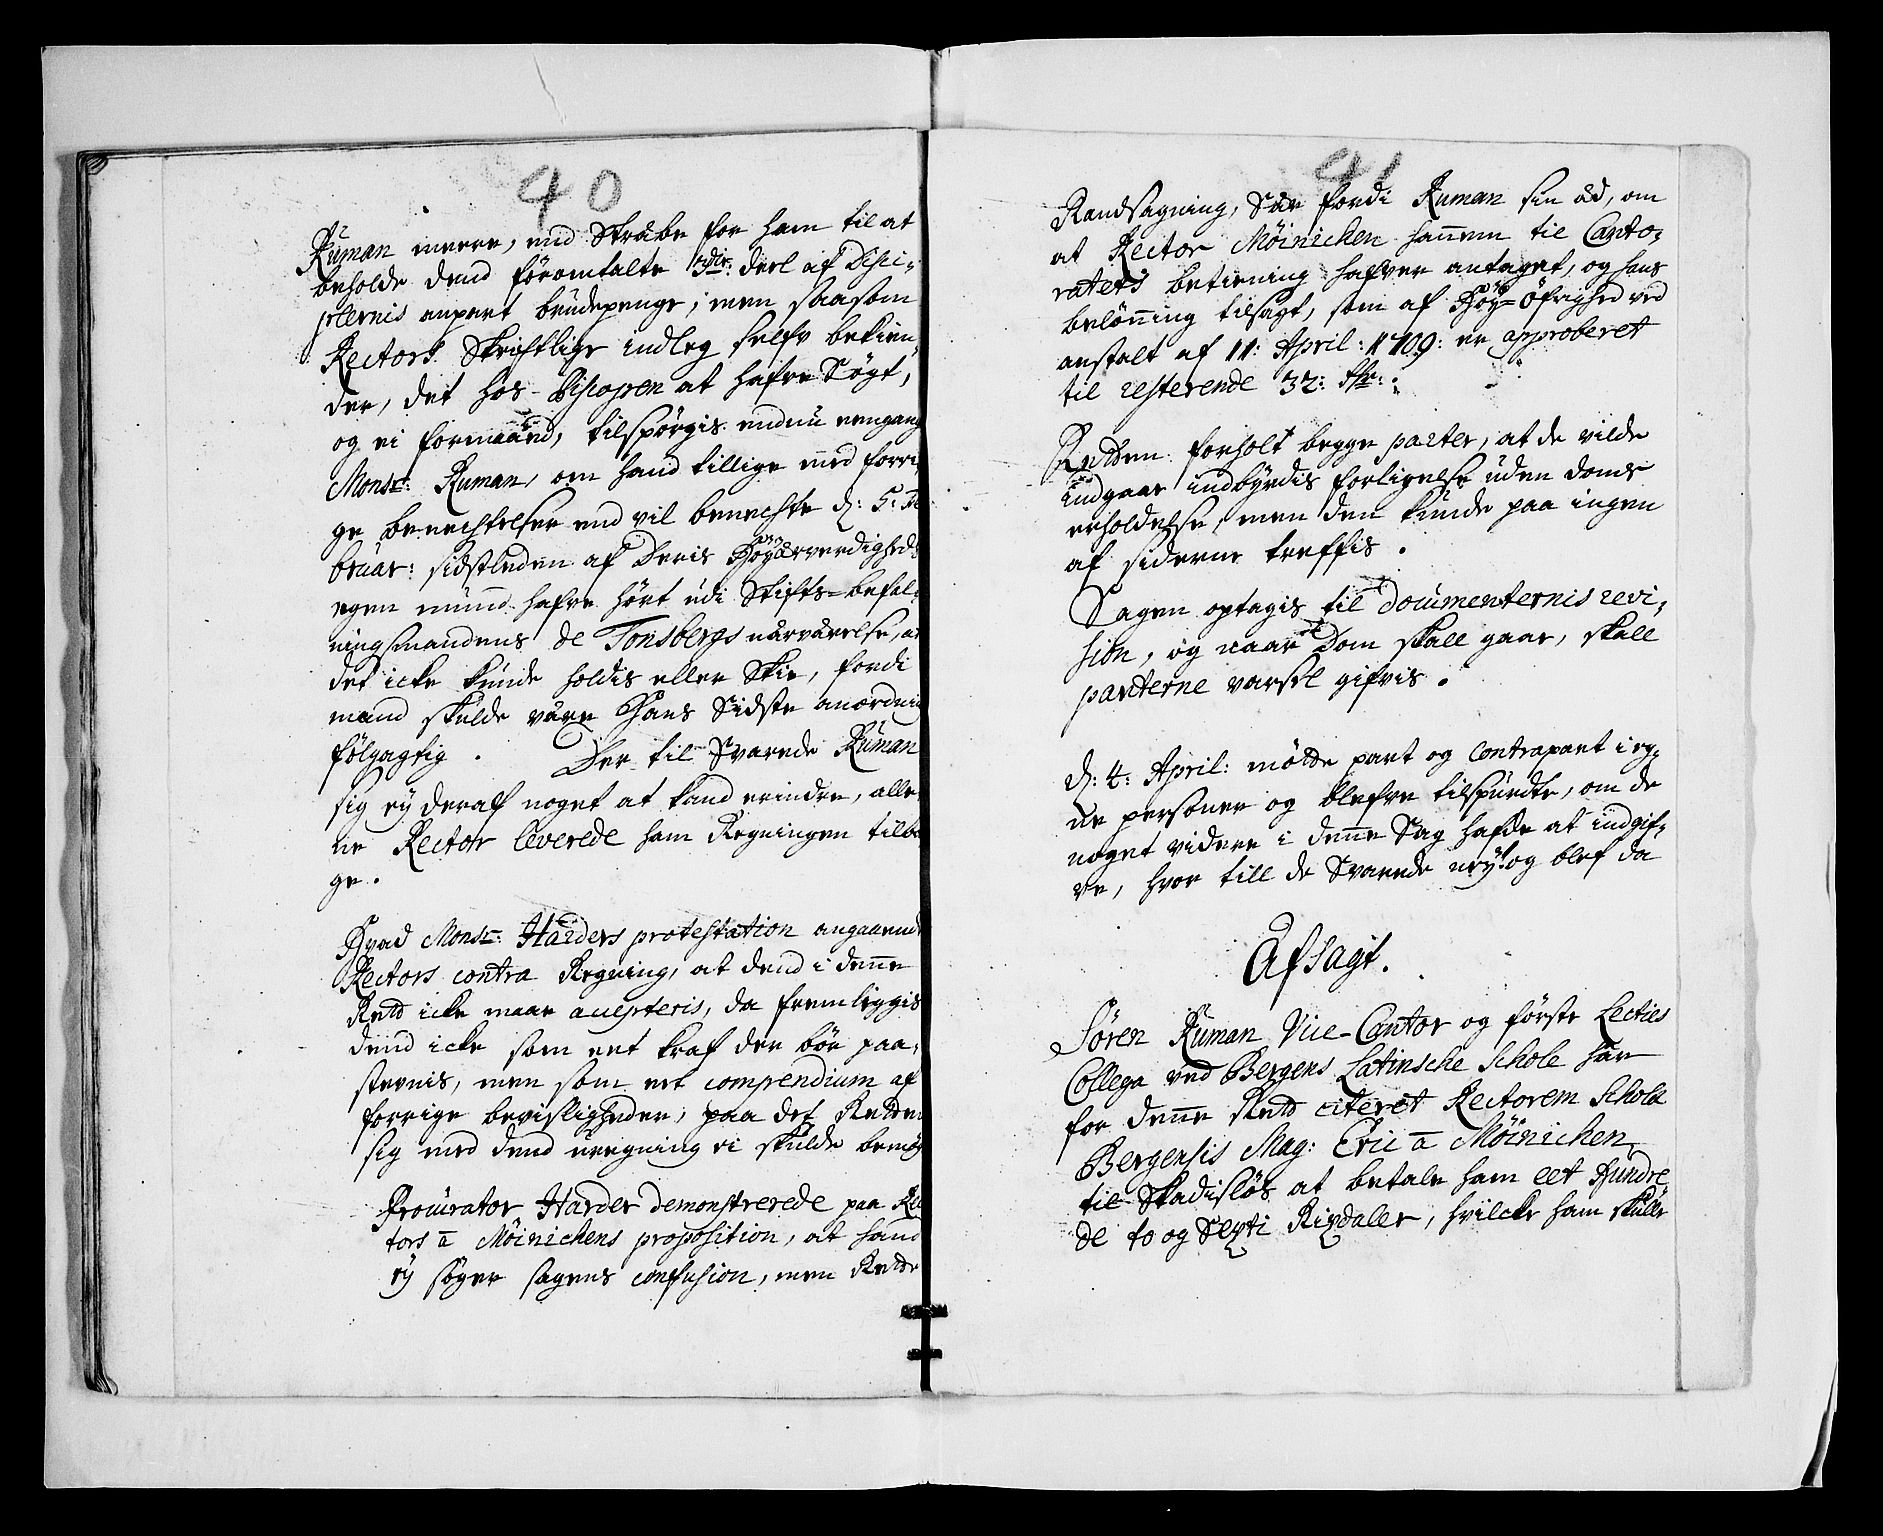 40
Ruman meere, end Skräbe for ham til at
beholde dend föromtalte 3die deel af Disci-
plernis anpart brudepenge; men saasom
Rectors Skriftlige indleg selfv bekien-
der, det hos Biscopen at hafve Sögt,
og ei formaaed, tilspörgis endnu eengang
Monsr: Ruman, om hand tillige med forri-
ge benechtelser end vil benechte d: 5: Fe
bruar: sidstleden af Deris Höyärverdigheds
egen mund hafve hört udi Stifts-befal-
ningsmandens de Tonsbergs närvärelse, at
det icke kunde holdis eller Skie, fordi
mand skulde väre Hans Sidste anordning
fölgagtig. Der til Svarede Ruman
sig ey deraf noget at kand erindre, alle-
ne Rector leverede ham Regningen tilba
ge.
Hvad Monsr: Harders protestation angaaende
Rectors contra Regning, at dend i denne
Rett icke maae accepteris, da fremliggis
dend icke som eet kraf der bör paa-
stevnis, men som eet compendium af
forrige bevisligheder, paa det Retten
sig med dend uregning ei skulde bemöy
Procurator Harder demonstrerede paa Rec
tors a Möinichens proposition, at hand
ey söger sagens confusion, men Rette
41
Randsagning, Saa fordi Ruman sin äd, om
at Rector Möinichen hannem til Canto-
ratets betiening hafver antaget, og hans
belönning tilsagt, som af Höy-Öfrighed ved
anstalt af 11: April: 1709: er approberet
til resterende 32:
Retten forholt begge parter, at de vilde
indgaae indbyrdis forligelse uden doms
erholdelse, men den kunde paa ingen
af siderne treffis.
Sagen optagis til documenternis revi-
sion, og naar Dom skall gaae, skall
parterne varsel gifvis.
d: 4: April: mötte part og contrapart i eg-
ne personer og blefve tilspurdte, om de
noget videre i denne Sag hafde at indgif-
ve, hvor till de Svarede ney og blef da
Afsagt.
Sören Ruman Vice-Cantor og förste Lecties
Collega ved Bergens Latinsche Schole har
for denne Rett citeret Rectorem Scholæ
Bergensis Mag: Eric a Möinichen
til Skadislös at betale ham eet Hundre
de to og Sexti Rixdaler, hvilcke ham skulle